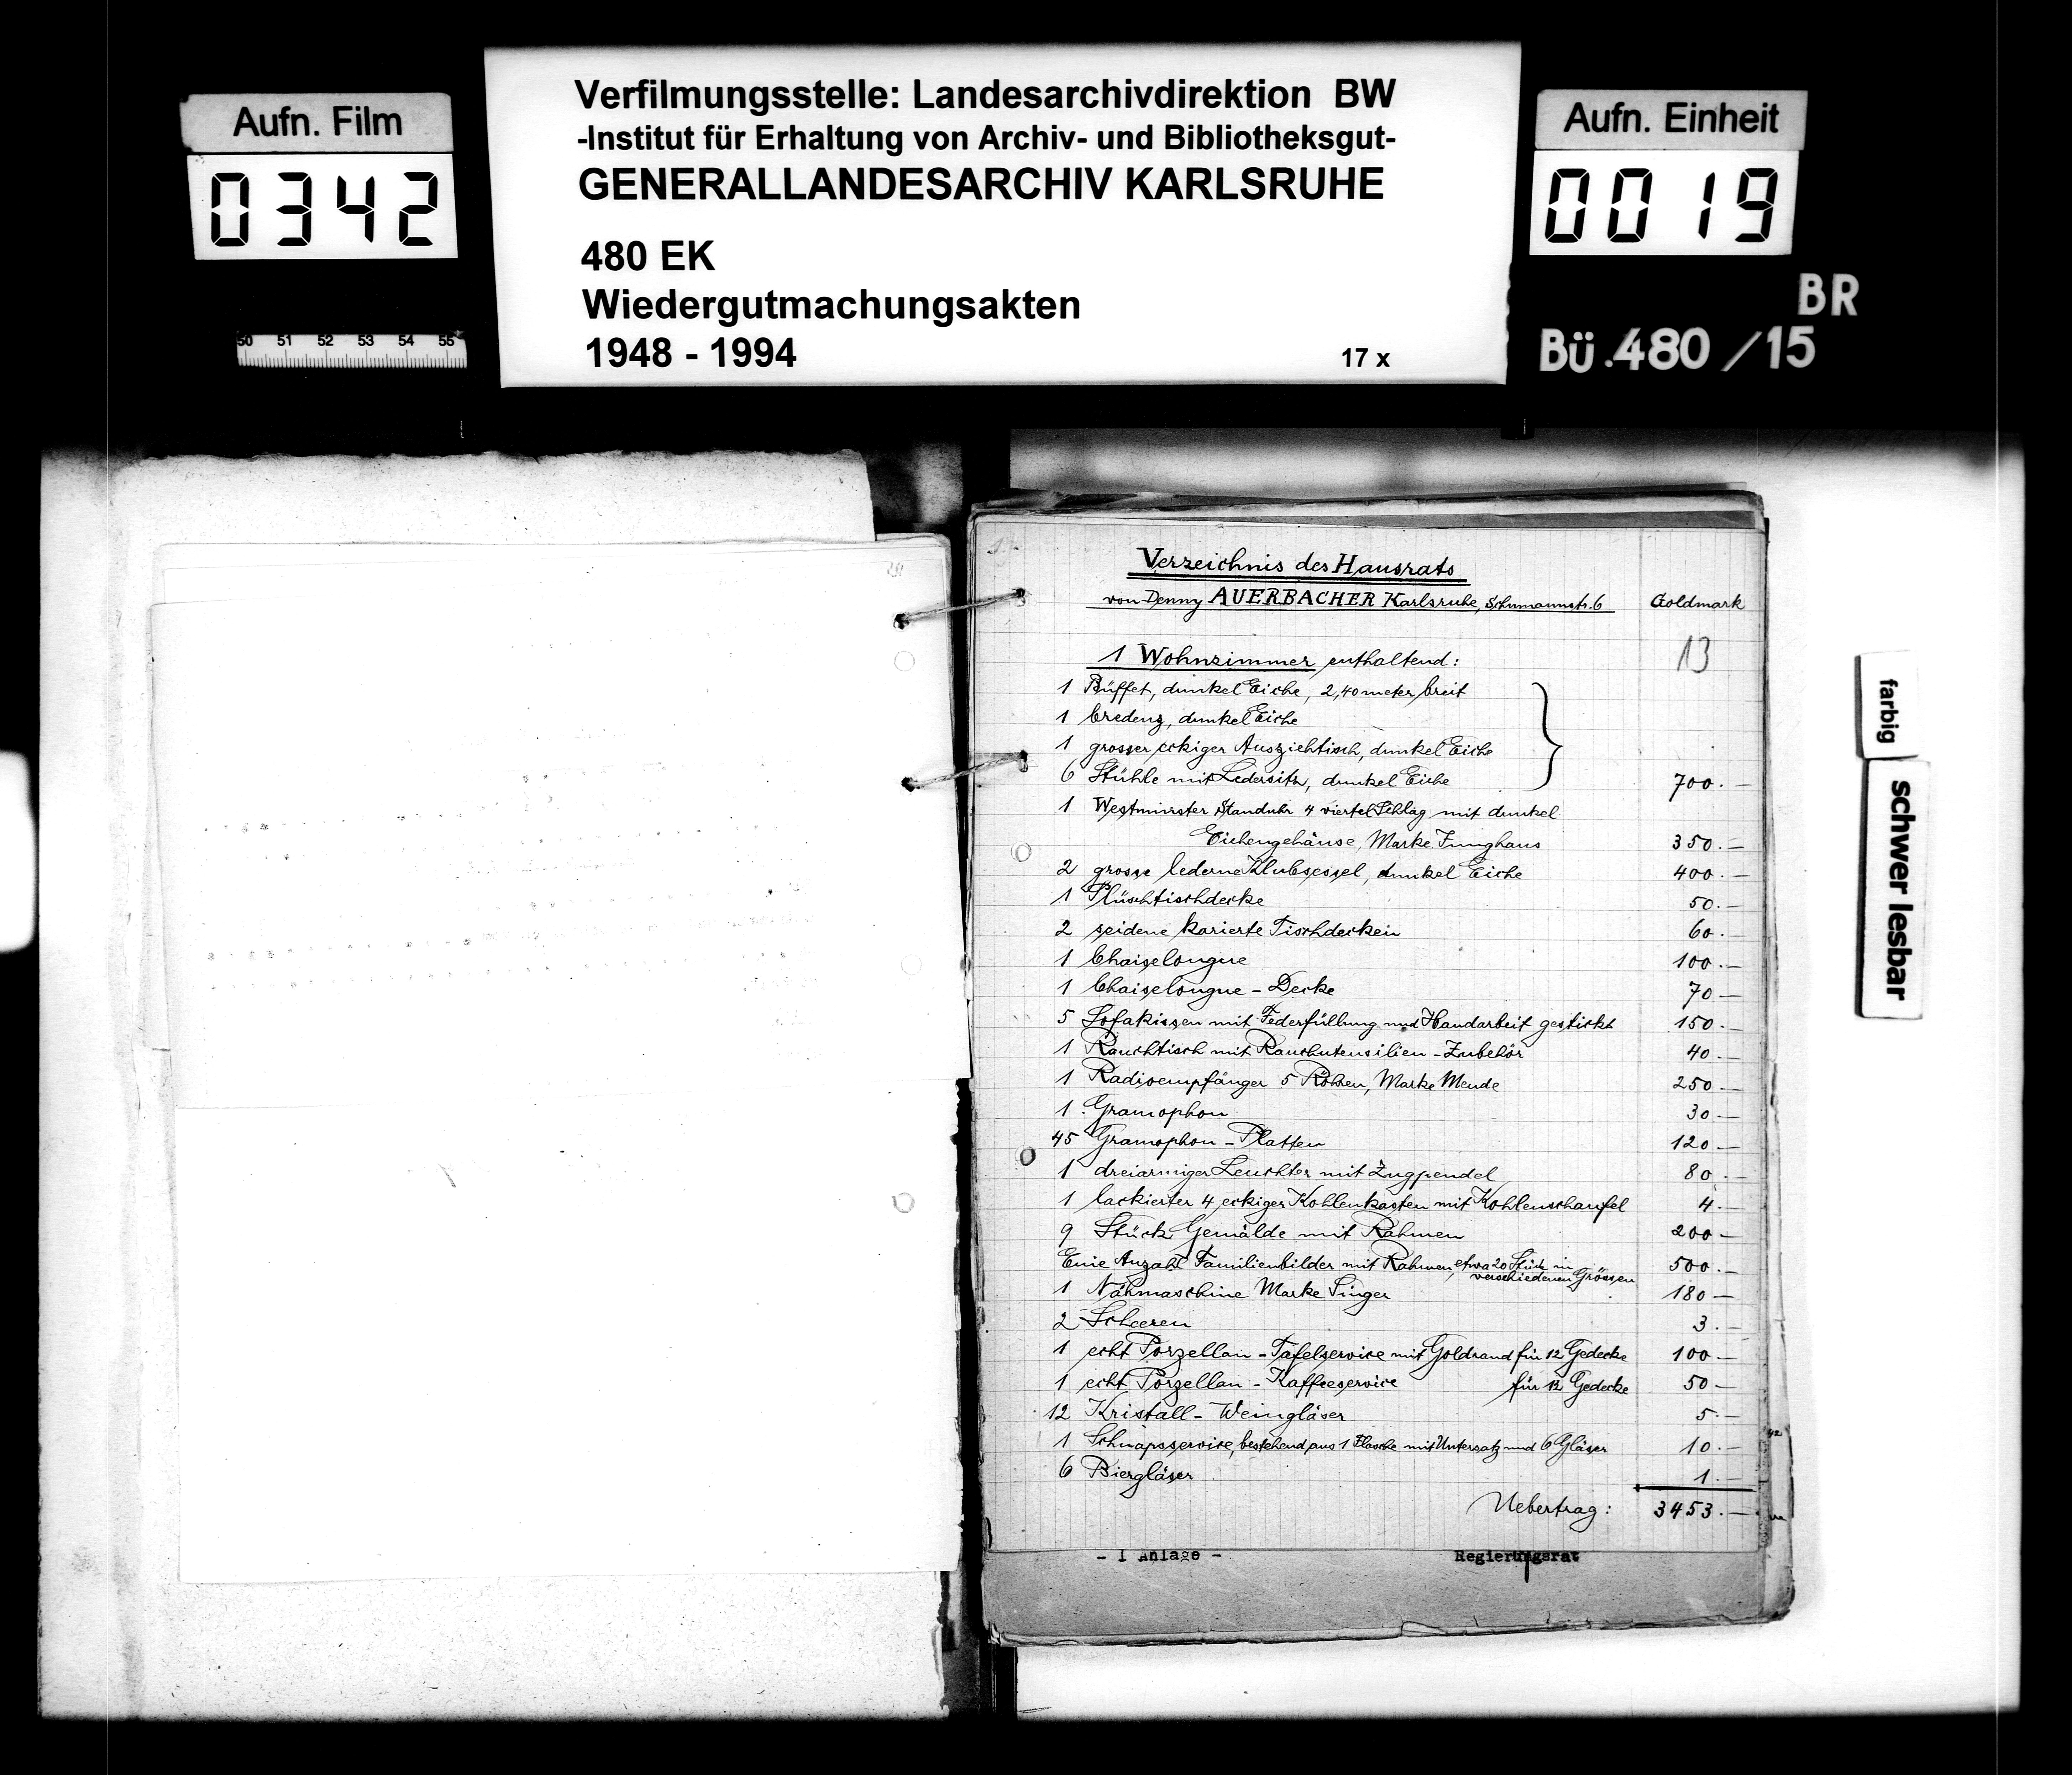 Aufn. Film
0342
50 51 52 53 54 55
Verfilmungsstelle: Landesarchivdirektion BW
-Institut für Erhaltung von Archiv- und Bibliotheksgut-
GENERALLANDESARCHIV KARLSRUHE
480 EK
Wiedergutmachungsakten
1948 - 1994
17 x
Aufn. Einheit
0019
BR
Bü.480/15
farbig
schwer lesbar
Verzeichnis des Hausrats
von Denny AUERBACHER Karlsruhe, Schumannstr. 6 Goldmark
13
1 Wohnzimmer enthaltend:
1 Büffet, dunkel Eiche, 2,40 meter breit
1 Credenz, dunkel Eiche
1 grosser eckiger Ausziehtisch, dunkel Eiche
6 Stühle mit Ledersitz, dunkel Eiche 700.-
1 Westminster Standuhr 4 viertel Schlag mit dunkel
Eichengehäuse, Marke Junghans 350.-
2 grosse lederne Klubsessel, dunkel Eiche 400.-
1 Plüschtischdecke 50.-
2 seidene karierte Tischdecken 60.-
1 Chaiselongue 100.-
1 Chaiselongue - Decke 70-
5 Sofakissen mit Federfüllung und Handarbeit gestickt 150.-
1 Rauchtisch mit Rauchutensilien - Zubehör 40.-
1 Radioempfänger 5 Röhren, Marke Mende 250-
1 Gramophon 30.-
45 Gramophon - Platten 120-
1 dreiarmiger Leuchter mit Zugpendel 80.-
1 lackierter 4 eckiger Kohlenkasten mit Kohlenschaufel 4.-
9 Stück Gemälde mit Rahmen 200-
Eine Anzahl Familienbilder mit Rahmen, etwa 20 Stück in 500.-
verschiedenen Grössen
1 Nähmaschine Marke Singer 180-
2 Scheeren 3.-
1 echt Porzellan - Tafelservice mit Goldrand für 12 Gedecke 100-
1 echt Porzellan - Kaffeeservice für 12 Gedecke 50-
12 Kristall - Weingläser 5.-
1 Schnapsservice, bestehend aus 1 Flasche mit Untersatz und 6 Gläser 10.-
6 Biergläser 1.-
Uebertrag: 3453.-
- 1 Anlage - Regierungsrat